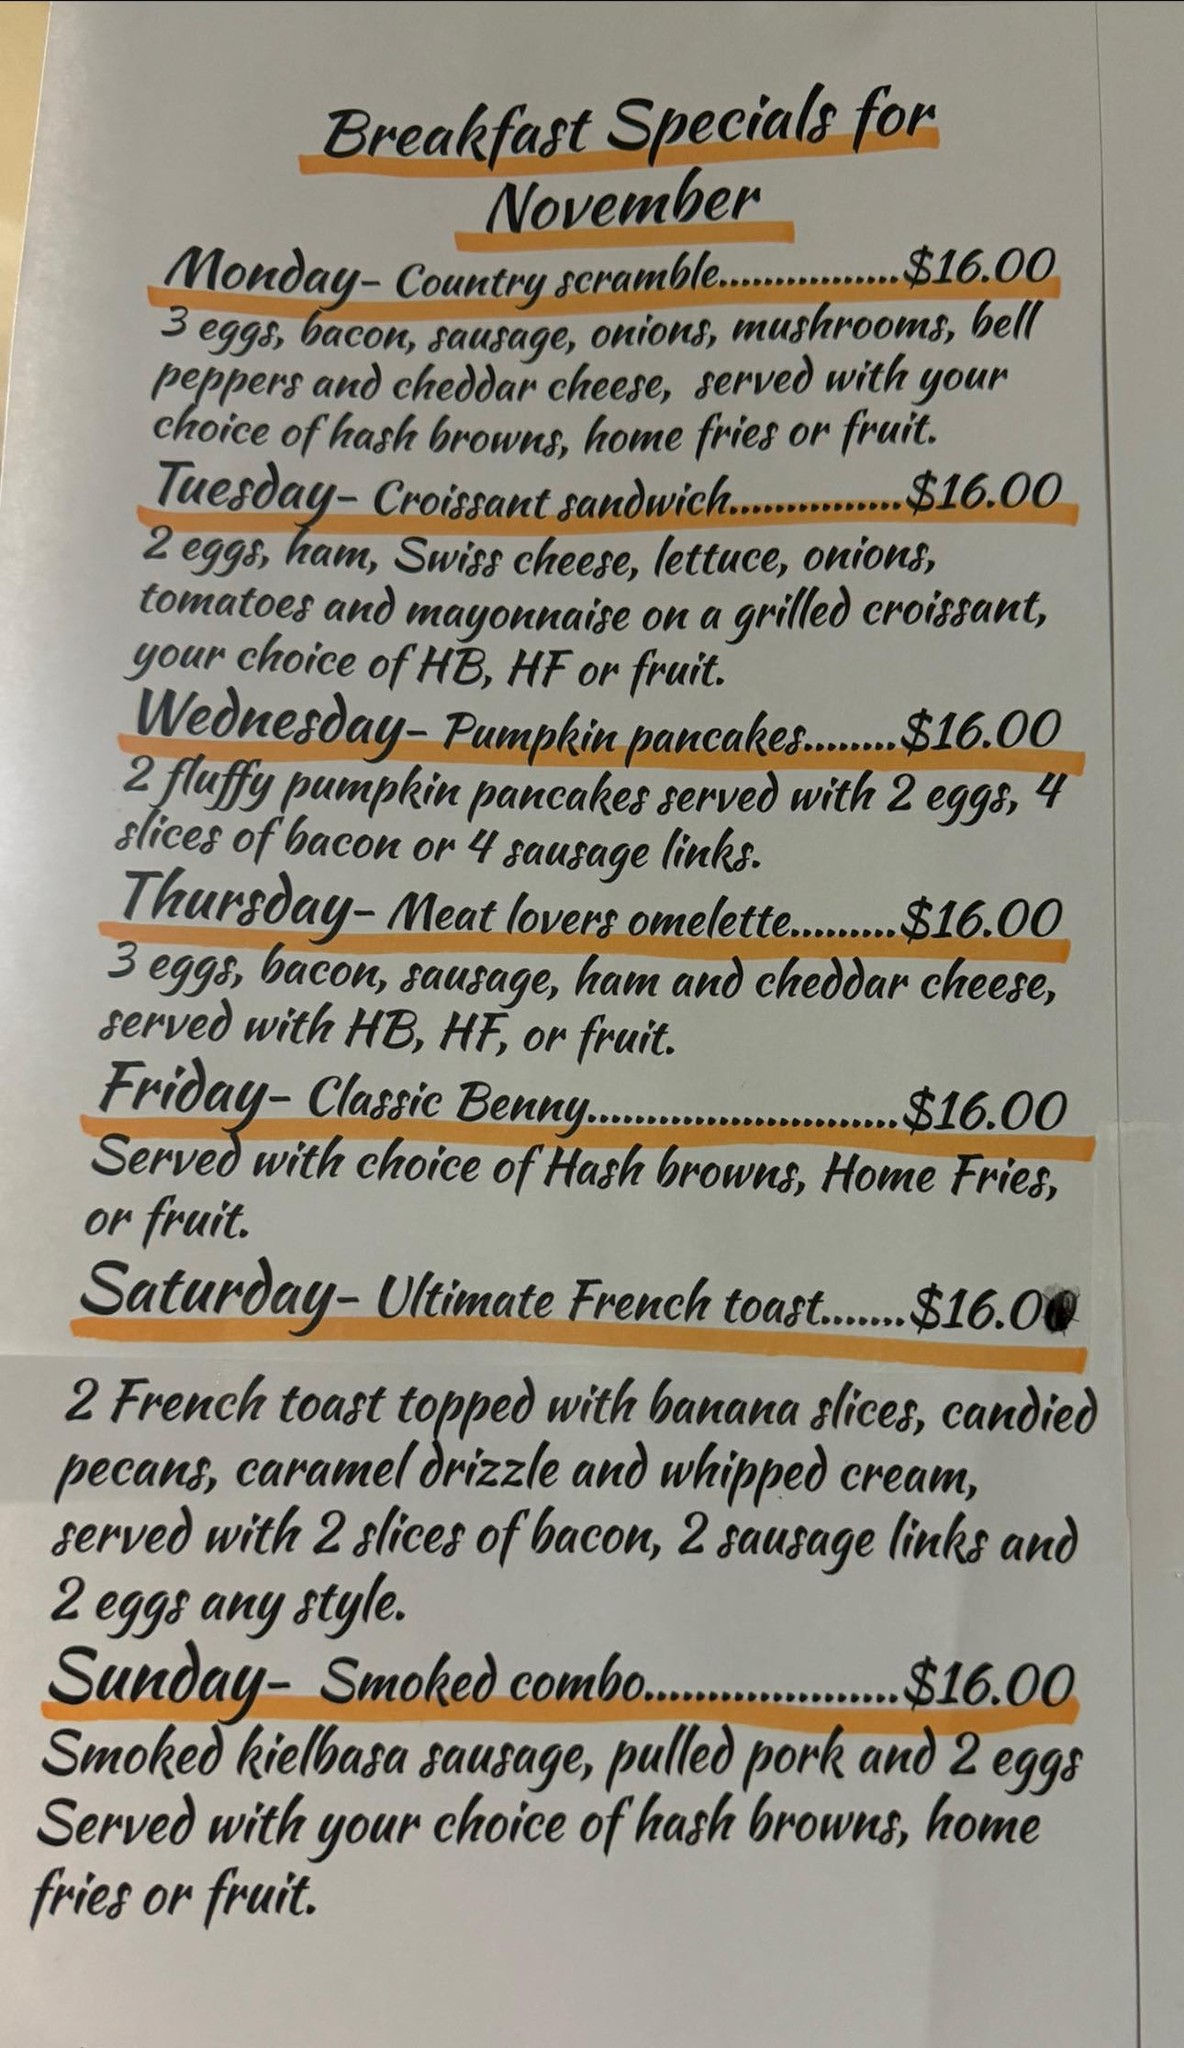 Breakfast Specials for
November
Monday- Country scramble.................$16.00
3 eggs, bacon, sausage, onions, mushrooms, bell
peppers and cheddar cheese, served with your
choice of hash browns, home fries or fruit.
Tuesday- Croissant sandwich................$16.00
2 eggs, ham, Swiss cheese, lettuce, onions,
tomatoes and mayonnaise on a grilled croissant,
your choice of HB, HF or fruit.
Wednesday- Pumpkin pancakes.........$16.00
2 fluffy pumpkin pancakes served with 2 eggs, 4
slices of bacon or 4 sausage links.
Thursday- Meat lovers omelette..........$16.00
3 eggs, bacon, sausage, ham and cheddar cheese,
served with HB, HF, or fruit.
Friday- Classic Benny.............................$16.00
Served with choice of Hash browns, Home Fries,
or fruit.
Saturday- Ultimate French toast........$16.00
2 French toast topped with banana slices, candied
pecans, caramel drizzle and whipped cream,
served with 2 slices of bacon, 2 sausage links and
2 eggs any style.
Sunday- Smoked combo.......................$16.00
Smoked kielbasa sausage, pulled pork and 2 eggs
Served with your choice of hash browns, home
fries or fruit.